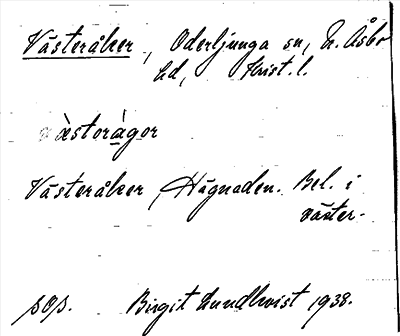 Västeråker, Oderljunga sn, N. Åsbo
hd, Krist. l.
vàstorágor
Västeråker Hägnaden. Bel. i
väster.
sOs. Birgit Lundkvist 1938.